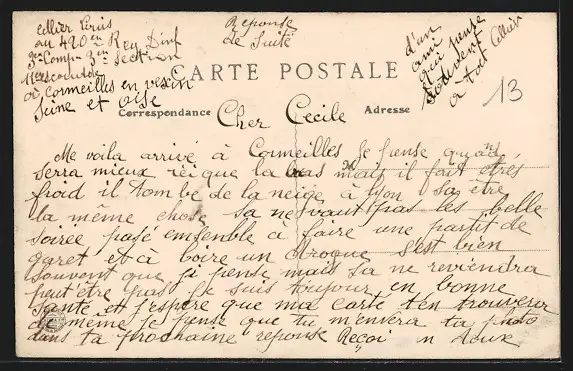 cellier Louis
au 420en Reg Dinf
9en Comp 3en section
11e escouade
a cormeilles en vexin
Seine et Oise
Reponse
de Suite
d'un
ami
qui pense
souvent
a toi Cellier
13
CARTE POSTALE
Correspondance
Adresse
Cher Cecile
Me voila arrivé à Cormeilles Je pense quon
serra mieux ici que la bas mais il fait etres
froid il tombé de la neige à Lyon sa être
la même chose sa ne vaut pas les belle
soirée pasé ensemble à faire une partit de
garet et à boire un Broque s'est bien
souvent que ji pense mais sa ne reviendra
peut être pas Je suis toujour en bonne
Santé et j'espère que ma carte ten trouvera
de même Je pense que tu m'envera ta photo
dans ta prochaine reponse Reçoi n doux